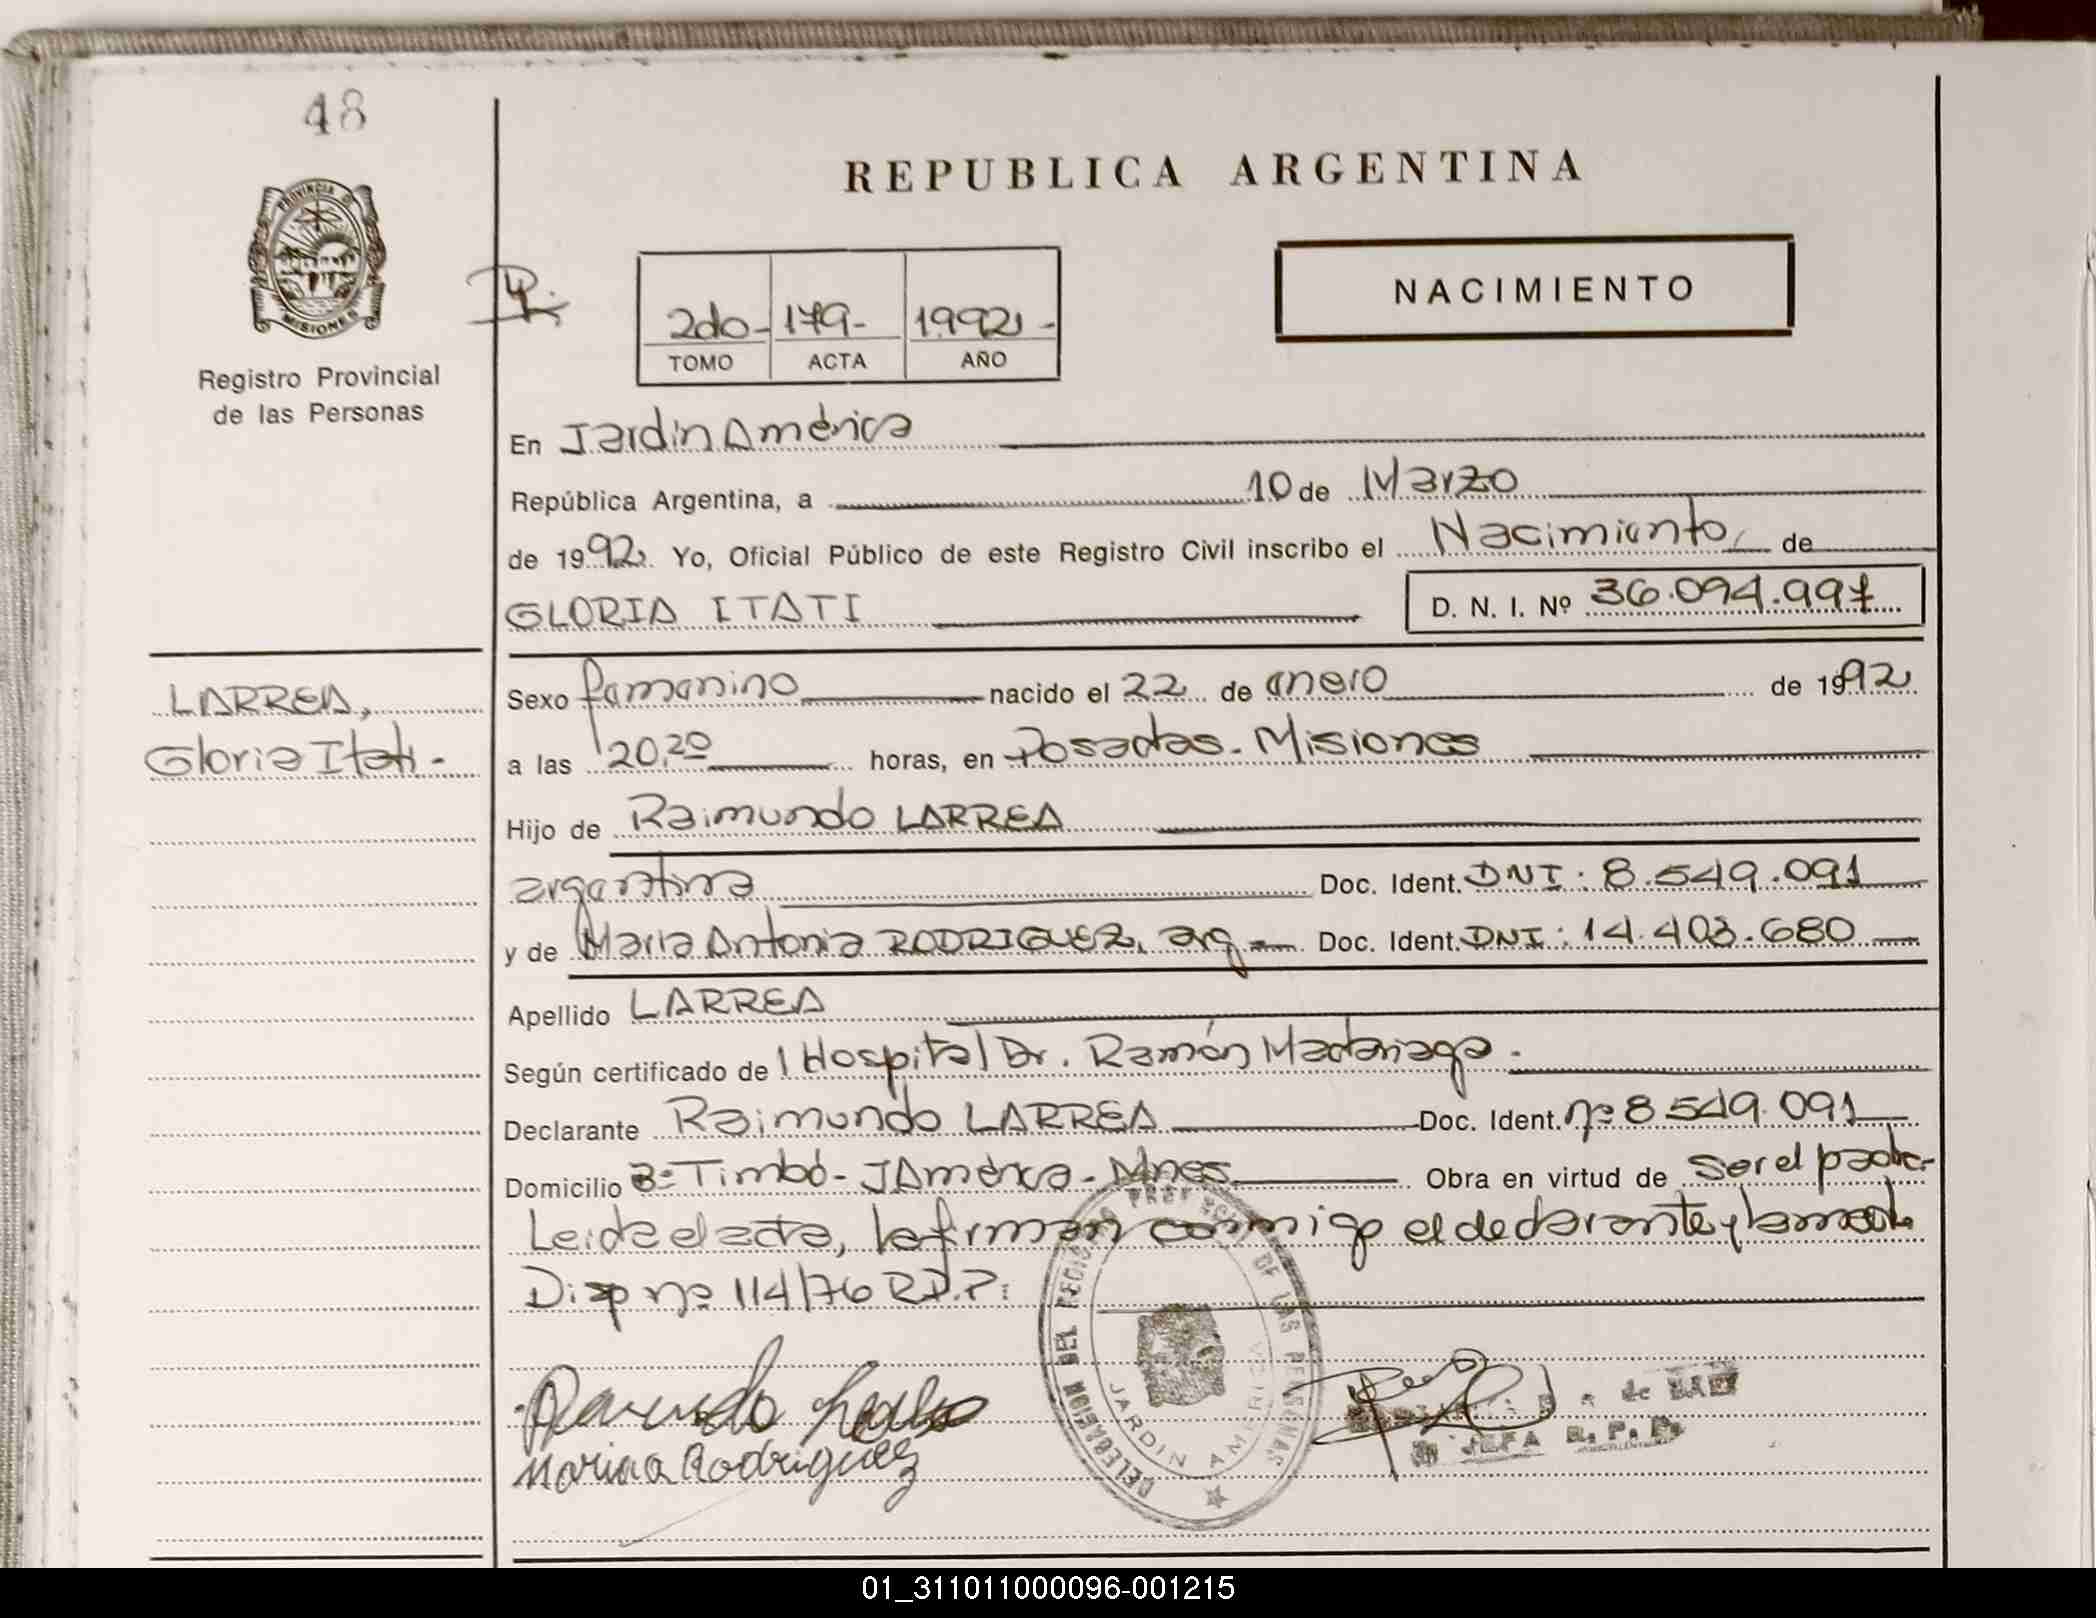 48
REPUBLICA ARGENTINA
PROVINCIA DE
MISIONES
Registro Provincial
de las Personas
NACIMIENTO
2do- 179- 1992-
TOMO ACTA AÑO
En Jardin América
República Argentina, a 10 de Marzo
de 1992. Yo, Oficial Público de este Registro Civil inscribo el Nacimiento de
GLORIA ITATI D. N. I. Nº 36.094.997
LARREA,
Gloria Itati.-
Sexo femenino nacido el 22 de enero de 1992
a las 20,20 horas, en Posadas. Misiones
Hijo de Raimundo LARREA
argentina Doc. Ident. DNI: 8.549.091
y de Maria Antonia RODRIGUEZ, arg.- Doc. Ident. DNI: 14.403.680
Apellido LARREA
Según certificado de l Hospital Dr. Ramón Madariaga.
Declarante Raimundo LARREA Doc. Ident. nº 8.549.091
Domicilio Bº Timbó- JAmérica- Mnes. Obra en virtud de ser el padre-
Leida el acta, la firman conmigo el declarante y la madre
Disp nº 114/76 R.P.P.
DELEGACION DEL REGISTRO PROVINCIAL DE LAS PERSONAS
JARDIN AMERICA
Maria a Rodriguez
de
JEFA R. P. P.
01_311011000096-001215